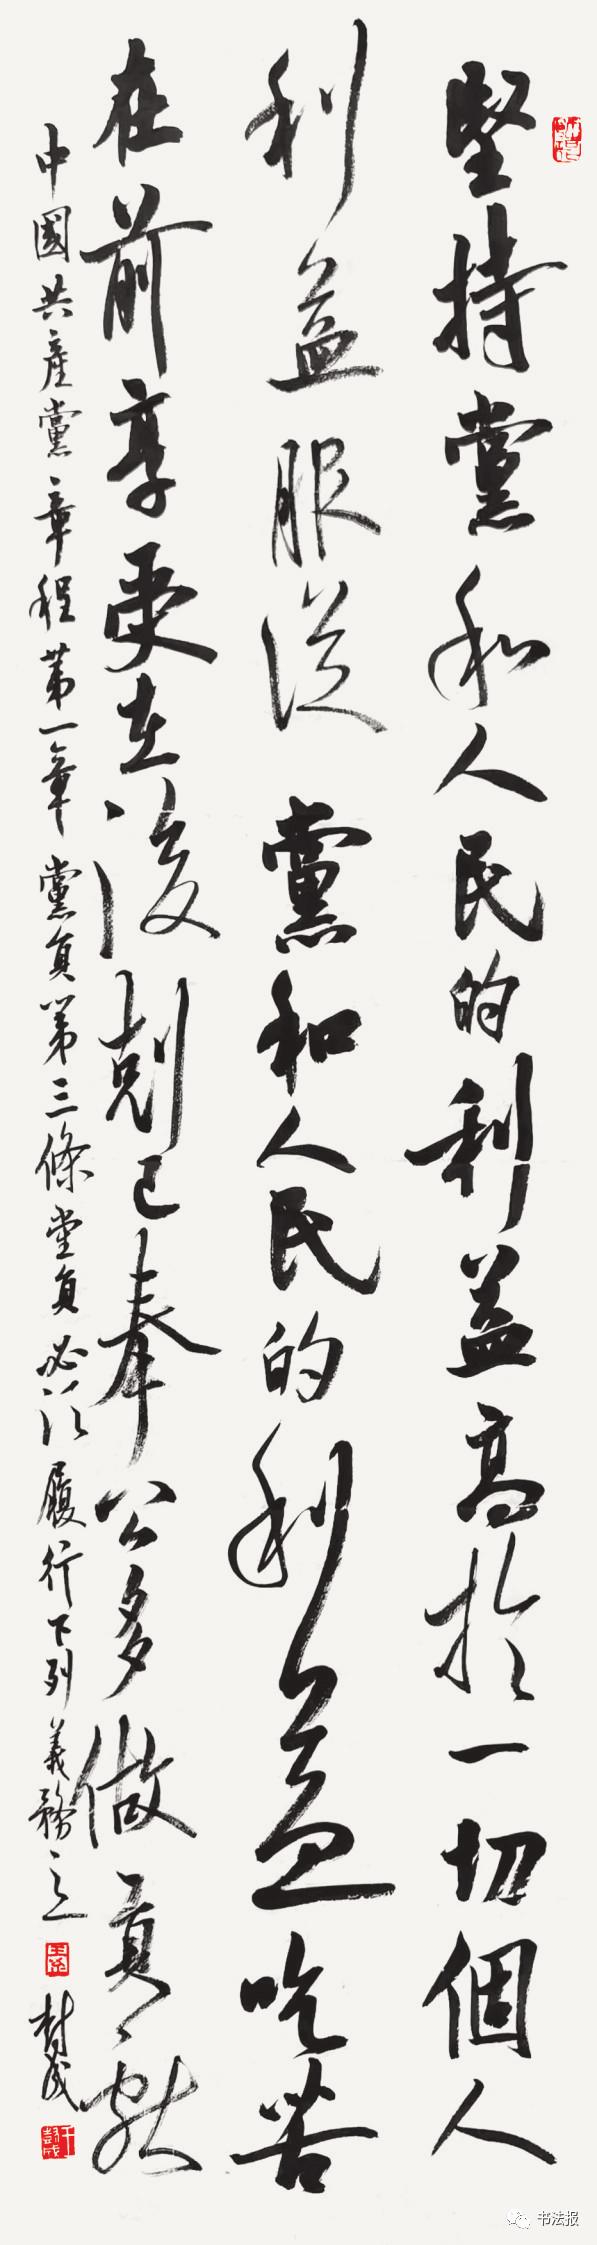 堅持黨和人民的利益高於一切個人
利益服從黨和人民的利益吃苦
在前享受在後剋己奉公多做貢獻
中國共產黨章程第一章黨員第三條黨員必須履行下列義務之
书法报